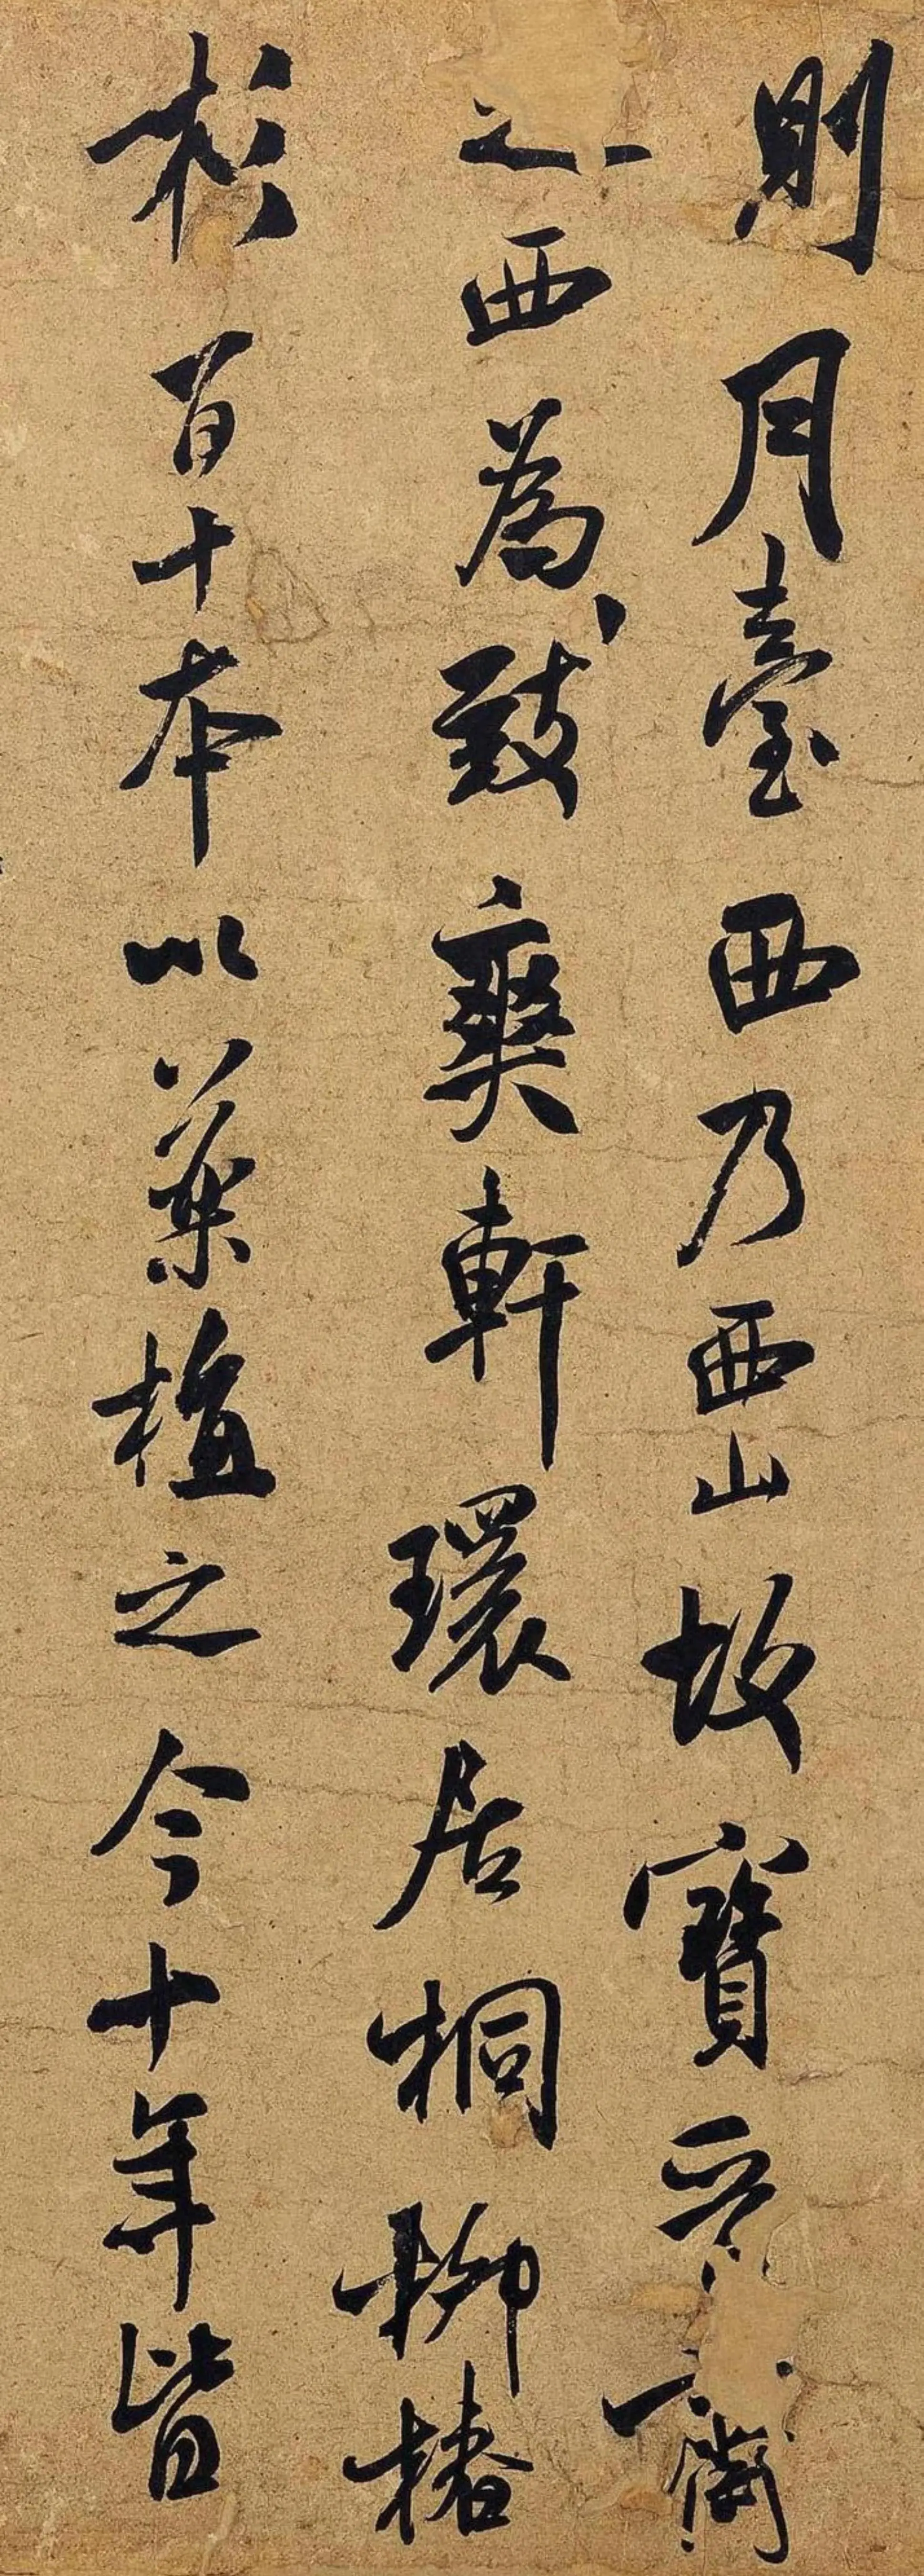 則月臺西乃西山故寶晉齋
之西為致爽軒環居桐柳椿
杉百十本以葉植之今十年皆